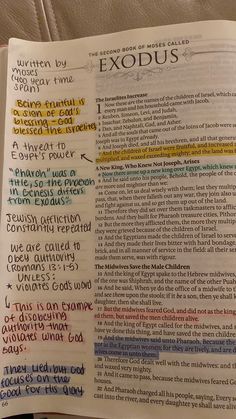 written by
moses
(400 year time
span)
Being fruitful is
a sign of God's
blessing - God
blessed the Israelites
A threat to
Egypt's power
"Pharaoh" was a
title, so the Pharaoh
in Genesis differs
from Exodus
Jewish affliction
constantly repeated
We are called to
obey authority
(Romans 13:1-5)
UNLESS:
* violates God's word
This is an example
of disobeying
authority that
violates what God
says.
They lied, but God
focuses on the
Good for His glory
66
THE SECOND BOOK OF MOSES CALLED
EXODUS
The Israelites Increase
Now these are the names of the children of Israel, which
every man and his household came with Jacob.
2 Reuben, Simeon, Levi, and Judah,
3 Issachar, Zebulun, and Benjamin,
4 Dan, and Naphtali, Gad, and Asher.
5 And all the souls that came out of the loins of Jacob were
Joseph was in Egypt already.
6 And Joseph died, and all his brethren, and all that
7 And the children of Israel were fruitful, and increased
multiplied, and waxed exceeding mighty; and the land was
A New King, Who Knew Not Joseph, Arises
8 Now there arose up a new king over Egypt, which knew
9 And he said unto his people, Behold, the people of the
are more and mightier than we:
10 Come on, let us deal wisely with them; lest they multiply
pass, that, when there falleth out any war, they join also
and fight against us, and so get them up out of the land.
11 Therefore they did set over them taskmasters to afflict
burdens. And they built for Pharaoh treasure cities, Pithom
12 But the more they afflicted them, the more they multiplied
they were grieved because of the children of Israel.
13 And the Egyptians made the children of Israel to serve
14 And they made their lives bitter with hard bondage,
brick, and in all manner of service in the field: all their
made them serve, was with rigour.
The Midwives Save the Male Children
15 And the king of Egypt spake to the Hebrew midwives,
of the one was Shiphrah, and the name of the other Puah
16 And he said, When ye do the office of a midwife to
and see them upon the stools; if it be a son, then ye shall
daughter, then she shall live.
17 But the midwives feared God, and did not as the king
them, but saved the men children alive.
18 And the king of Egypt called for the midwives, and
have ye done this thing, and have saved the men children
19 And the midwives said unto Pharaoh, Because the
as the Egyptian women; for they are lively, and are
wives come in unto them.
20 Therefore God dealt well with the midwives: and the
and waxed very mighty.
21 And it came to pass, because the midwives feared
houses.
22 And Pharaoh charged all his people, saying, Every
cast into the river, and every daughter ye shall save